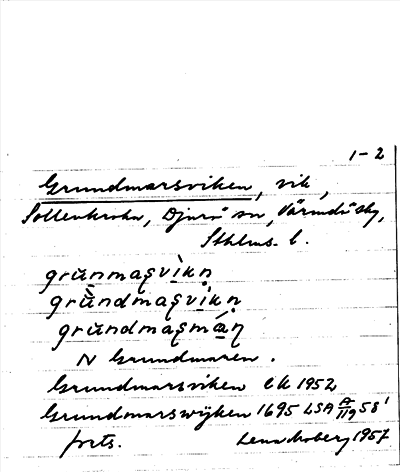 1-2
Grundmarsviken, vik,
Sollenkroka, Djurö sn, Värmdö skg,
Sthlms l.
grùn̥maʂvìkn̥
grùndmaʂvìkn̥
grundmaʂmán̥
N Grundmaren.
Grundmarsviken ek 1952
Grundmarswijken 1695 LSA A 119 58'
forts. Lena Moberg 1957